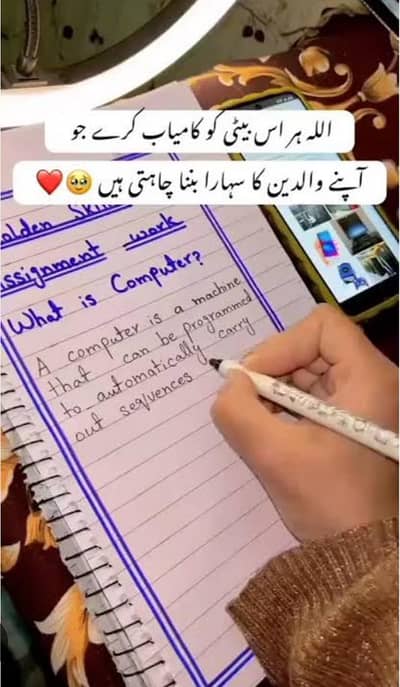 اللہ ہر اس بیٹی کو کامیاب کرے جو
آپنے والدین کا سہارا بننا چاہتی ہیں 🥹❤️
olden Skill
ssignment work
What is Computer?
A computer is a machine
that can be programmed
to automatically carry
out seqvences